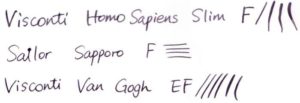 Visconti Homo Sapiens Slim F
Sailor Sapporo F
Visconti Van Gogh EF